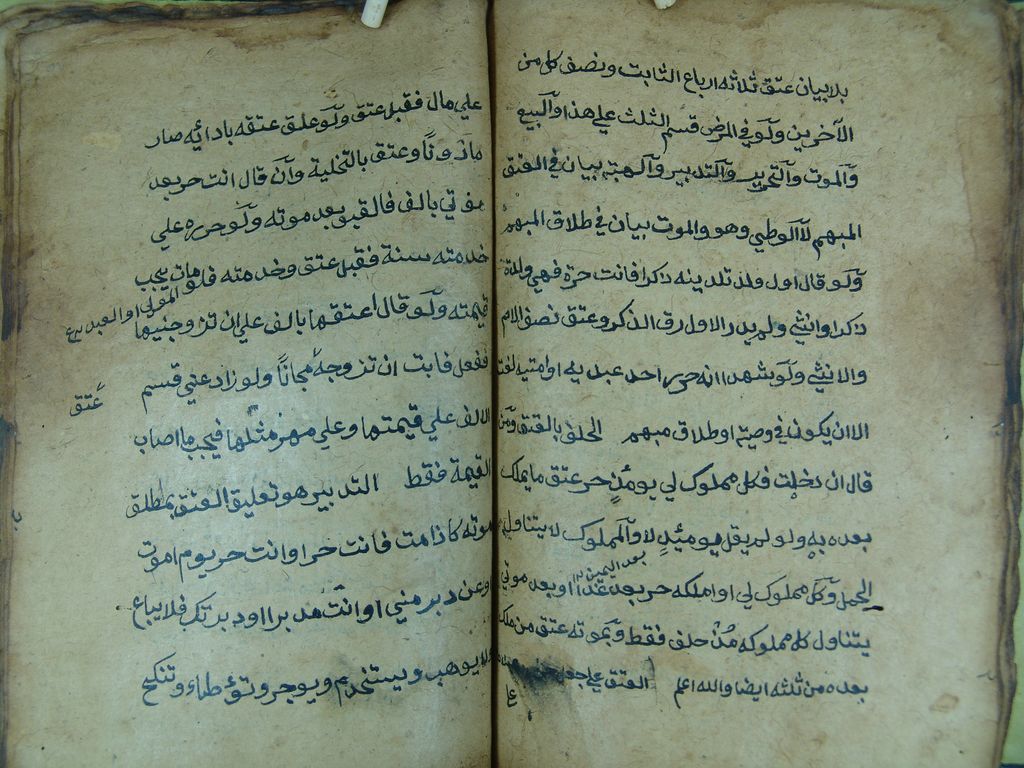 بلا بيان عتق ثلاثه ارباع الثابت ونصف كل من
الآخرين ولو في المرض قسم الثلث علي هذا والبيع
والموت والتحرير والتدبير والهبة بيان في العتق
المبهم لا الوطي وهو والموت بيان في طلاق المبهم
ولو قال اول ولد تلدينه ذكرا فانت حرة فهي ولدة
ذكرا وانثي ولم يدر الاول رق الذكر وعتق نصف الام
والانثي ولو شهدا انه حرر احد عبديه او امتيه لغت
الا ان يكون في وصية او طلاق مبهم الحلف بالعتق ومن
قال ان دخلت فكل مملوك لي يومئذ حر عتق ما يملك
بعده به ولو لم يقل يومئذ لا والمملوك لا يتناول
الحمل وكل مملوك لي او املكه حر بعد غد او بعد موتي
بعد اليمين
يتناول كل مملوكه مذ حلف فقط وبموته عتق من ملك
بعده من ثلثه ايضا والله اعلم العتق علي جعل
علي مال فقبل عتق ولو علق عتقه بادائه صار
ماذونا وعتق بالتخلية وان قال انت حر بعد
موتي بالف فالقبول بعد موته ولو حرره علي
خدمته سنة فقبل عتق وخدمته فلو مات يجب
المولي او العبد
قيمته ولو قال اعتقها بالف علي ان تزوجنيها
ففعل فابت ان تزوجه مجانا ولو زاد عني قسم
عتق
الالف علي قيمتها وعلي مهر مثلها فيجب ما اصاب
القيمة فقط التدبير هو تعليق العتق بمطلق
موته كاذا مت فانت حر او انت حر يوم اموت
او عن دبر مني او انت مدبر او دبرتك فلا يباع
ولا يوهب ويستخدم ويوجر وتوطاء وتنكح